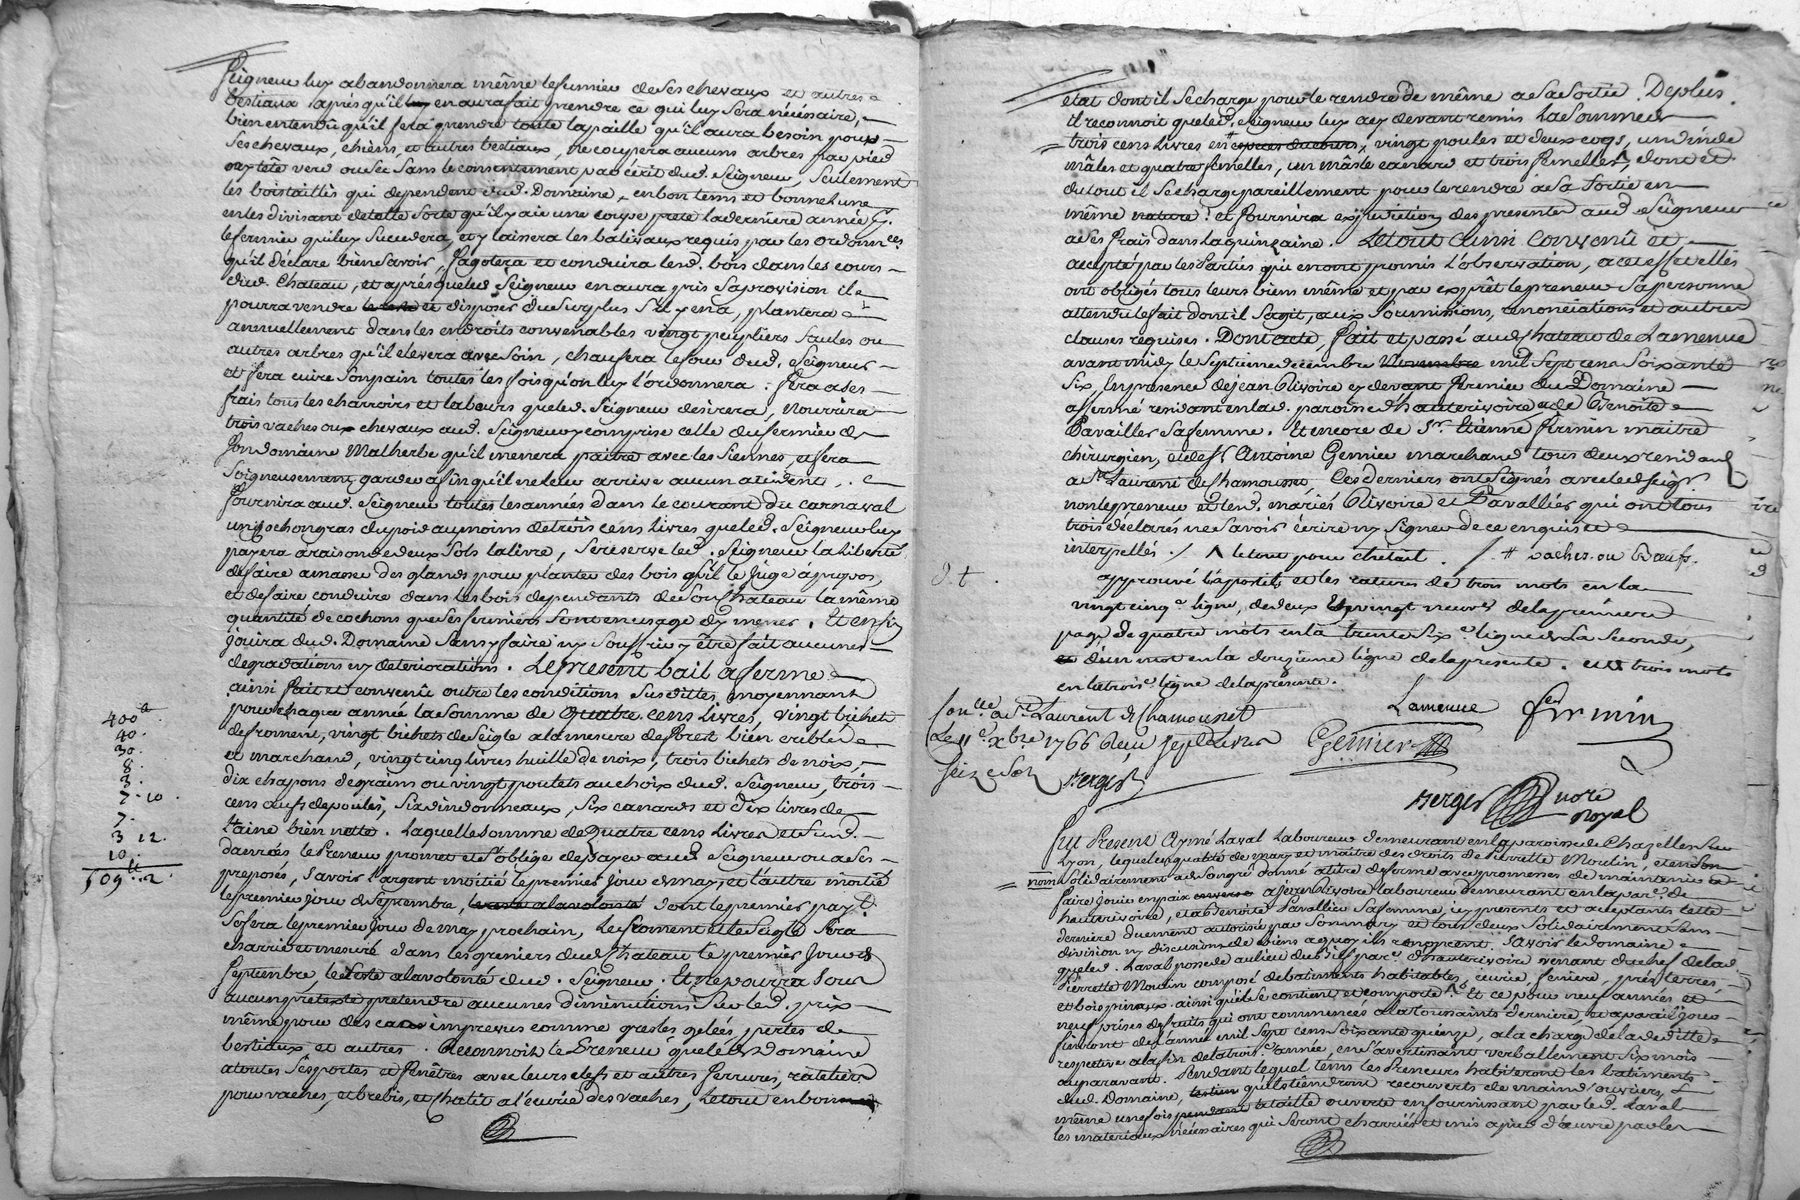 Seigneur luy abandonnera même le fumier de ses chevaux et autres
bestiaux après qu'il en aura fait prendre ce qui luy sera nécéssaire,
bien entendû qu'il fera prendre toute la paille qu'il aura besoin pour
ses chevaux, chiens, et autres bestiaux, ne coupera aucuns arbres par pied
ny tête verd ou sec sans le consentement par écrit dud. Seigneur, seulement
les bois taillis qui dependent dud. Domaine, en bon tems et bonne lune
en les divisant de telle sorte qu'il y aie une coupe prete la derniere année p.
le fermier qui luy succedera, et y laissera les balivaux requis par les ordonnces
qu'il déclare bien savoir, fagotera et conduira lesd. bois dans les cours
dud. Chateau, et aprés que led. Seigneur en aura pris sa provision il
pourra vendre et disposer du surplus s'il y en a, plantera
annuellement dans les endroits convenables vingt peupliers saules ou
autres arbres qu'il elevera avec soin, chaufera le four dud. Seigneur
et fera cuire son pain toutes les fois qu'on luy l'ordonnera. fera a ses
frais tous les charroirs et labours que led. Seigneur desirera, nourrira
trois vaches ou chevaux aud. Seigneur y comprise celle du fermier de
son domaine Malherbe qu'il menera paitre avec les siennes, et fera
soigneusement garder afin qu'il ne leur arrive aucun accident.
fournira aud. Seigneur toutes les années dans le courant du carnaval
un cochon gras du poid au moins de trois cens livres que led. Seigneur luy
payera a raison de deux sols la livre, se reserve led. Seigneur la liberté
de faire amasser des glands pour planter des bois qu'il le juge à propos,
et de faire conduire dans les bois dependants de son chateau la même
quantité de cochons que ses fermiers sont en usage d'y mener. Et enfin
jouira dud. Domaine sans y faire ny souffrir y être fait aucunes
degradations ny deteriorations. Le present bail a ferme
ainsi fait et convenû outre les conditions susdittes moyennant
pour chaque année la somme de quatre cens livres, vingt bichets
de froment, vingt bichets de seigle a la mesure de forest bien criblé
et marchand, vingt cinq livres huille de noix, trois bichets de noix,
dix chapons de grains ou vingt poulets au choix dud. Seigneur, trois
cens œufs de poules, six dindonneaux, six canards et dix livres de
laine bien nette. Laquelle somme de quatre cens livres et susd.
danrées le Preneur promet et s'oblige de payer aud. Seigneur ou a ses
preposés, savoir l'argent moitié le premier jour de may, et l'autre moitié
le premier jour de septembre, dont le premier paymt.
se fera le premier jour de may prochain, le froment et le seigle sera
charrié et mesuré dans les greniers dud. chateau le premier jour de
septembre, le reste a la volonté dud. Seigneur. Et ne pourra sous
aucun pretexte pretendre aucunes diminutions sur led. prix
même pour des cas imprevus comme gresles gelées, pertes de
bestiaux et autres. Reconnoit le Preneur que led. Domaine
a toutes ses portes et fenêtres avec leurs clefs et autres ferrures, rateliers
pour vaches, et brebis, et chalit a l'écurie des vaches, le tout en bon
400 tt
40.
30.
8.
3.
7. 10.
7.
3 12.
10.
509 tt. 2.
etat dont il se charge pour le rendre de même a sa sortie. De plus
il reconnoit que led. Seigneur luy a cy devant remis la somme de
trois cens livres en # vingt poules et deux coqs, un dinde
mâles et quatre femelles, un mâsle canard et trois femelles Λ, dont et
du tout il se charge pareillement pour le rendre a sa sortie en
même nature. et fournira expedition des presentes aud. Seigneur
a ses frais dans la quinzaine. Le tout ainsi convenû et
accepté par les Parties qui en ont promis l'observation, a cet effet elles
ont obligés tous leurs biens même et par exprét le preneur sa personne
attendu le fait dont il s'agit, aux soumissions, renonciations et autres
clauses requises. Dont acte, fait et passé aud. chateau de Lamenue
avant midy le septieme decembre mil sept cens soixante
six, En presence de jean Rivoire cy devant fermier dud. Domaine
affermé residant en lad. paroisse d'hauterivoire et de Benoîte
Pavallier sa femme. Et encore de Sr. Etienne firmin maitre
chirurgien, et de Sr Antoine Gernier marchand tous deux residans
a St Laurent de chamousset, Ces derniers ont signés avec led. Seigr
non le preneur et lesd. mariés Rivoire et Pavallier qui ont tous
trois declarés ne savoir écrire ny signer de ce enquis et
interpellés. / Λ le tout pour cheptail. / # vaches ou bœufs.
approuvé l'apostils et les ratures de trois mots en la
vingt cinqe ligne, de deux et vingt neuve de la premiere
page de quatre mots en la trente sixe ligne de la seconde,
d'un mot en la douzieme ligne de la presente. et trois mots
en la troise ligne de la presente.
Lamenue firmin
Conlle a St Laurent de Chamousset
Le 11e Xbre 1766 Reçu sept livres
seize sols Berger
Gernier
Berger nore
royal
fut Present Aymé Laval laboureur demeurant en la paroisse de Chazelles sur
Lyon, lequel en qualité de mary et maitre des droits de Pierrette Moulin, et en son
nom solidairement a de son gré donné a titre de ferme avec promesses de maintenir et
faire jouir en paix a jean Rivoire laboureur demeurant en la parse. de
hauterivoire, et a Benoîte Pavallier sa femme, icy presents et acceptants cette
derniere duement autorisée par son mary et tous deux solidairement sans
division ny discussion de biens a quoy ils renoncent. savoir le domaine
que led. Laval possede au lieu du parse. d'hauterivoire venant du chef de lad.
Pierrette Moulin composé de batiments habitables, écurie, feniere, prés, terres,
et bois pinaux ainsi qu'il se contient et comporte. Et ce pour neuf années et
neuf prises de fruits qui ont commencés a la toussaints derniere, et a pareil jour
finiront de l'année mil sept cens soixante quinze, a la charge de la dedite
respective a la fin de la troise. année, en s'avertissant verballement six mois
auparavant. Pendant lequel tems les Preneurs habiteront les batiments
dud. Domaine, qu'ils tiendront recouverts de main d'ouvriers,
même une fois pendant a taille ouverte en fournissant par led. Laval
les materiaux nécessaires qui seront charriés et mis a pied d'œuvre par les